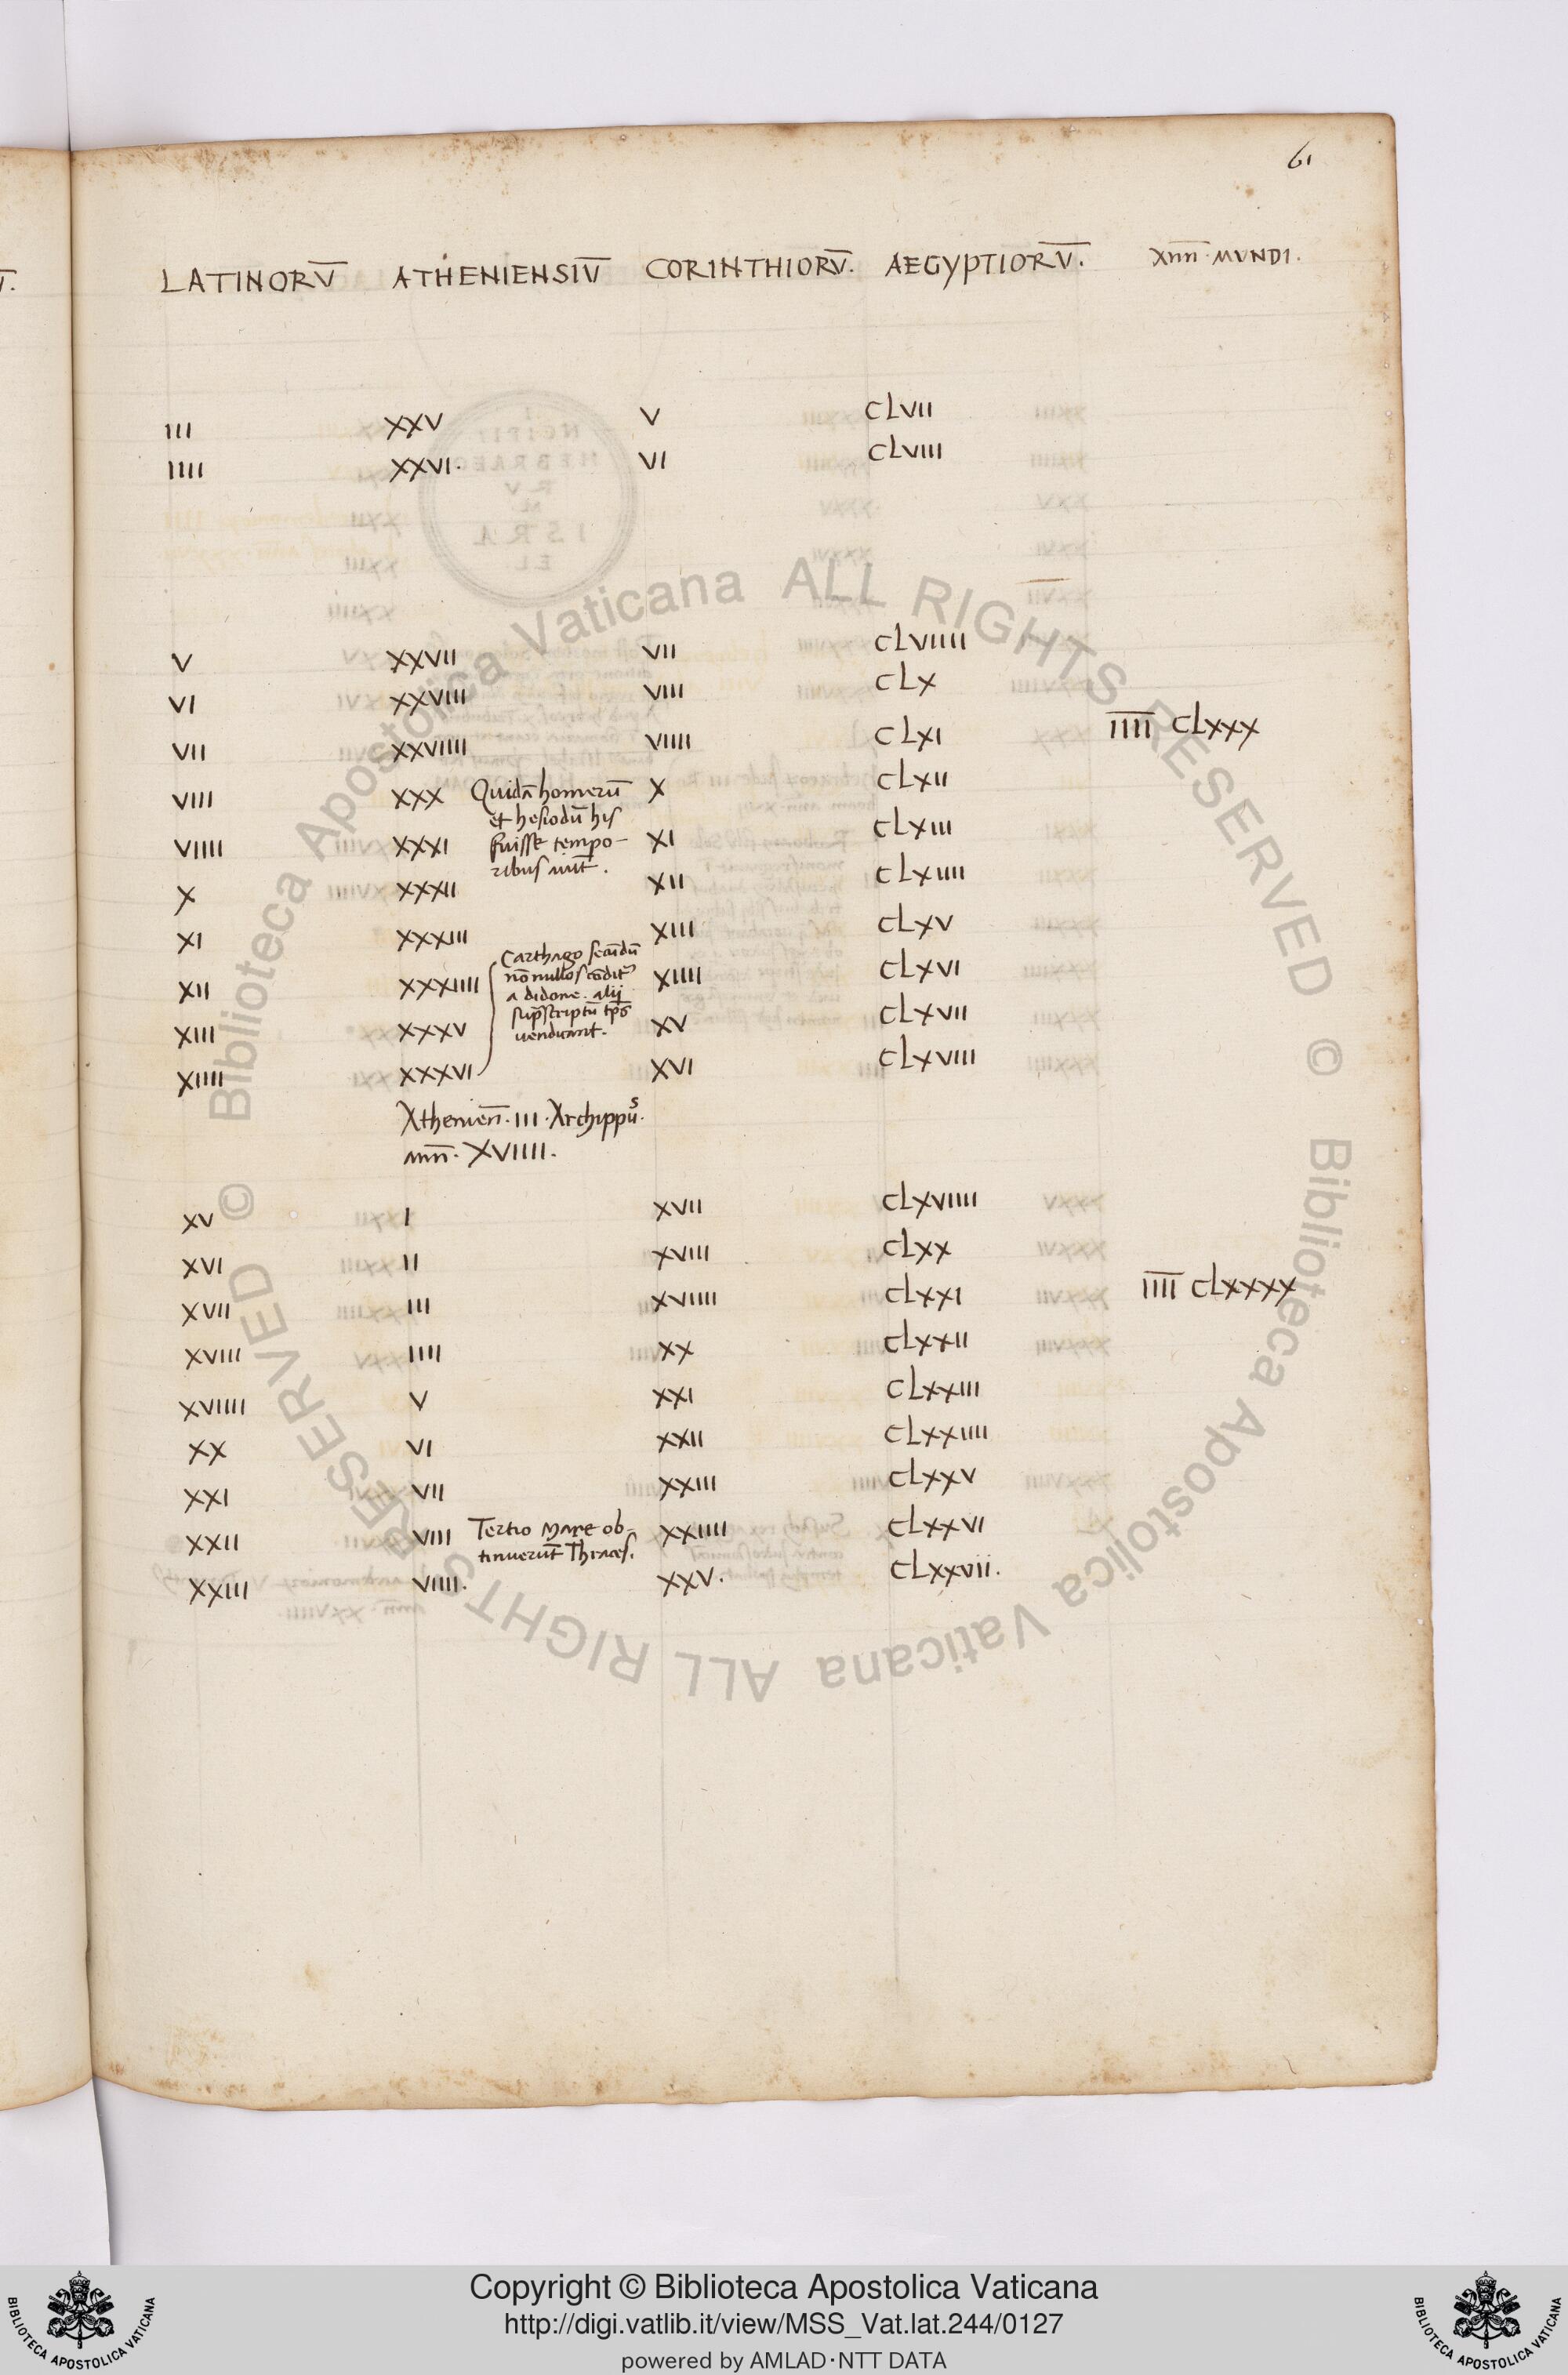 61
LATINORV̅ ATHENIENSIV̅ CORINTHIORV̅. AEGYPTIORV̅. XIIII MVNDI.
III XXV V CLVII
IIII XXVI. VI CLVIII
V XXVII VII CLVIIII
VI XXVIII VIII CLX
VII XXVIIII VIIII CLXI I̅I̅I̅I̅ CLXXX
VIII XXX Quidā homerū X CLXII
et hesiodū his
VIIII XXXI fuisse tempo- XI CLXIII
ribus aiūt.
X XXXII XII CLXIIII
XI XXXIII XIII CLXV
Carthago secūdū
XII XXXIIII nō nullos cōdit᷑ XIIII CLXVI
a didone. alij
XIII XXXV sup̄scriptū tp̄s XV CLXVII
uendicant.
XIIII XXXVI XVI CLXVIII
Athenien̄. III. Archippus.
ann̄. XVIIII.
XV I XVII CLXVIIII
XVI II XVIII CLXX
XVII III XVIIII CLXXI I̅I̅I̅I̅ CLXXXX
XVIII IIII XX CLXXII
XVIIII V XXI CLXXIII
XX VI XXII CLXXIIII
XXI VII XXIII CLXXV
XXII VIII Tertio mare ob- XXIIII CLXXVI
tinuerūt Thraces.
XXIII VIIII. XXV. CLXXVII.
© Biblioteca Apostolica Vaticana ALL RIGHTS RESERVED © Biblioteca Apostolica Vaticana ALL RIGHTS RESERVED
Copyright © Biblioteca Apostolica Vaticana
http://digi.vatlib.it/view/MSS_Vat.lat.244/0127
powered by AMLAD·NTT DATA
BIBLIOTECA APOSTOLICA VATICANA
BIBLIOTECA APOSTOLICA VATICANA